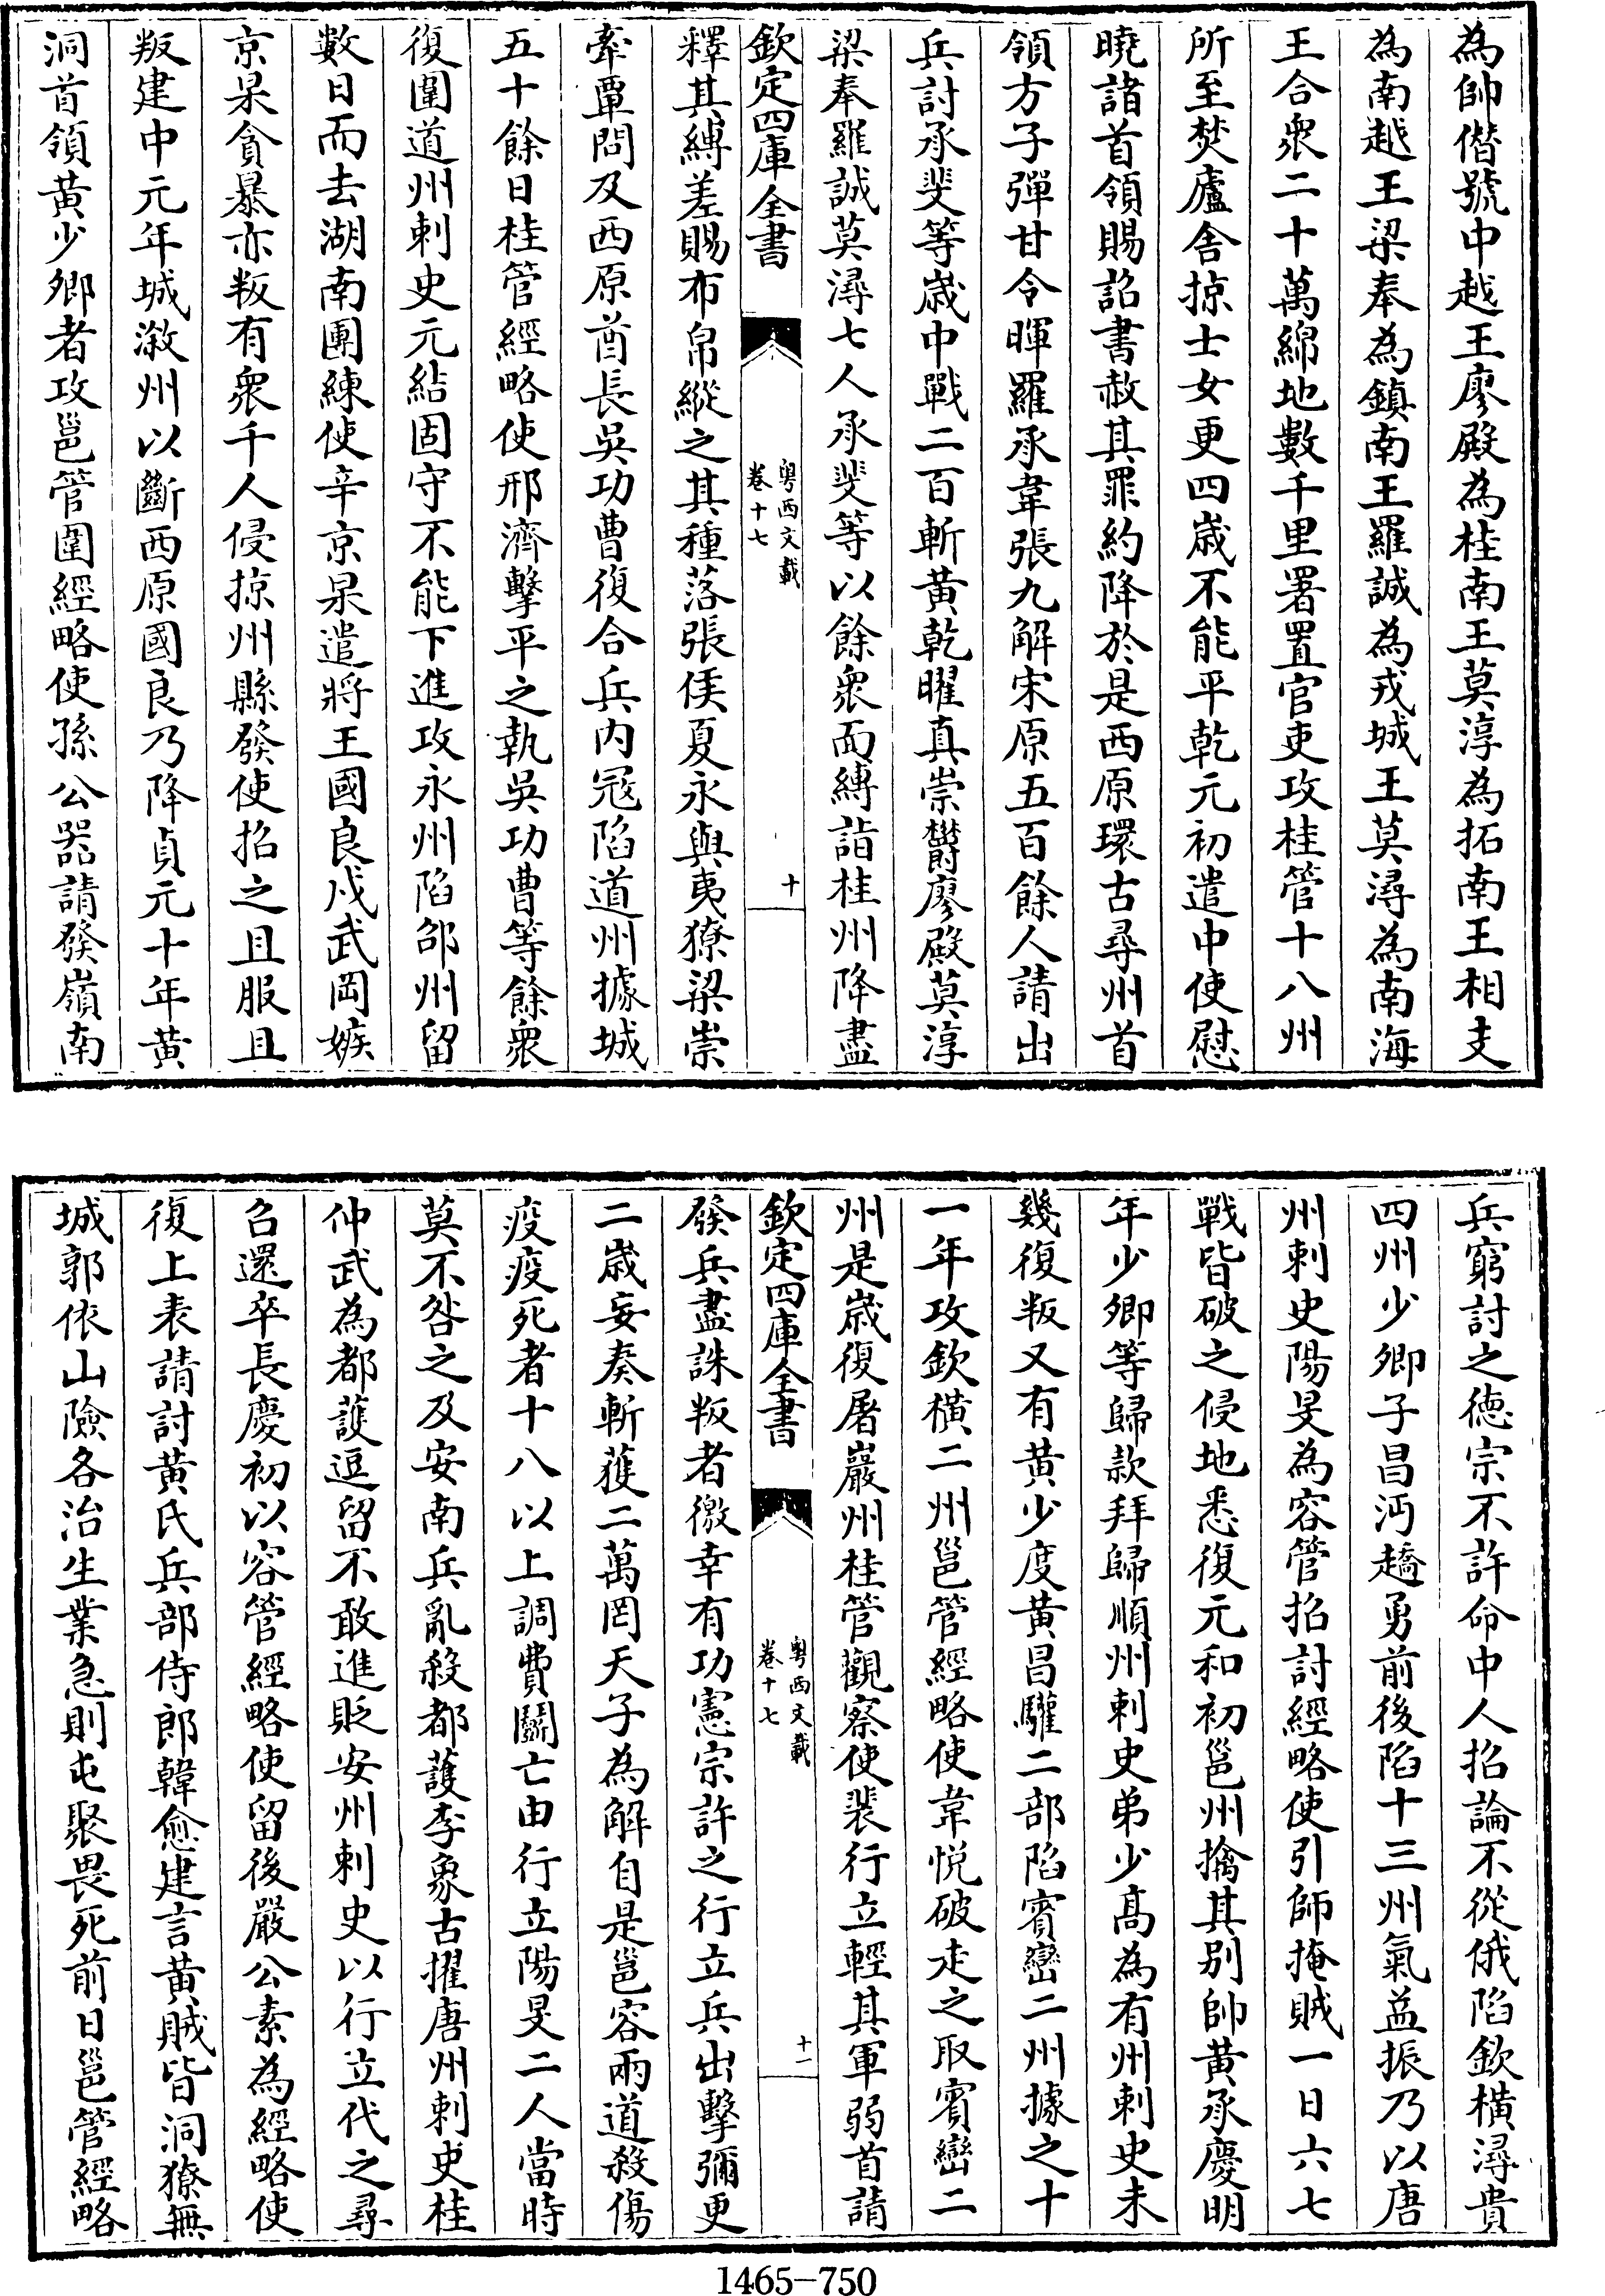 為帥僣號中越王廖殿為桂南王莫淳為拓南王相支
為南越王梁奉為鎮南王羅誠為戎城王莫潯為南海
王合衆二十萬綿地數千里署置官吏攻桂管十八州
所至焚廬舎掠士女更四歳不能平乾元初遣中使慰
曉諸首領賜詔書赦其罪約降於是西原環古尋州首
領方子彈甘令暉羅承韋張九解宋原五百餘人請出
兵討承斐等歳中戰二百斬黄乾曜真崇欝廖殿莫淳
梁奉羅誠莫潯七人承斐等以餘衆面縛詣桂州降盡
欽定四庫全書
粤西文載
卷十七
十
釋其縛差賜布帛縱之其種落張侯夏永與夷獠梁崇
牽覃問及西原酋長吳功曹復合兵内寇陷道州據城
五十餘日桂管經略使邢濟擊平之執吳功曹等餘衆
復圍道州刺史元結固守不能下進攻永州陷邵州留
數日而去湖南團練使辛京杲遣將王國良戍武岡嫉
京杲貪暴亦叛有衆千人侵掠州縣發使招之且服且
叛建中元年城漵州以斷西原國良乃降貞元十年黄
洞首領黄少卿者攻邕管圍經略使孫公器請發嶺南
兵窮討之徳宗不許命中人招論不從俄陷欽橫潯貴
四州少卿子昌沔趫勇前後陷十三州氣益振乃以唐
州刺史陽旻為容管招討經略使引師掩賊一日六七
戰皆破之侵地悉復元和初邕州擒其别帥黄承慶明
年少卿等歸款拜歸順州刺史弟少髙為有州刺史未
幾復叛又有黄少度黄昌驩二部陷賓巒二州據之十
一年攻欽橫二州邕管經略使韋悦破走之取賓巒二
州是歳復屠巖州桂管觀察使裴行立輕其軍弱首請
欽定四庫全書
粤西文載
卷十七
十一
發兵盡誅叛者徼幸有功憲宗許之行立兵出擊彌更
二歳妄奏斬獲二萬罔天子為解自是邕容兩道殺傷
疫疫死者十八以上調費鬭亡由行立陽旻二人當時
莫不咎之及安南兵亂殺都護李象古擢唐州刺史桂
仲武為都護逗留不敢進貶安州刺史以行立代之尋
召還卒長慶初以容管經略使留後嚴公素為經略使
復上表請討黄氏兵部侍郎韓愈建言黄賊皆洞獠無
城郭依山險各治生業急則屯聚畏死前日邕管經略
1465-750